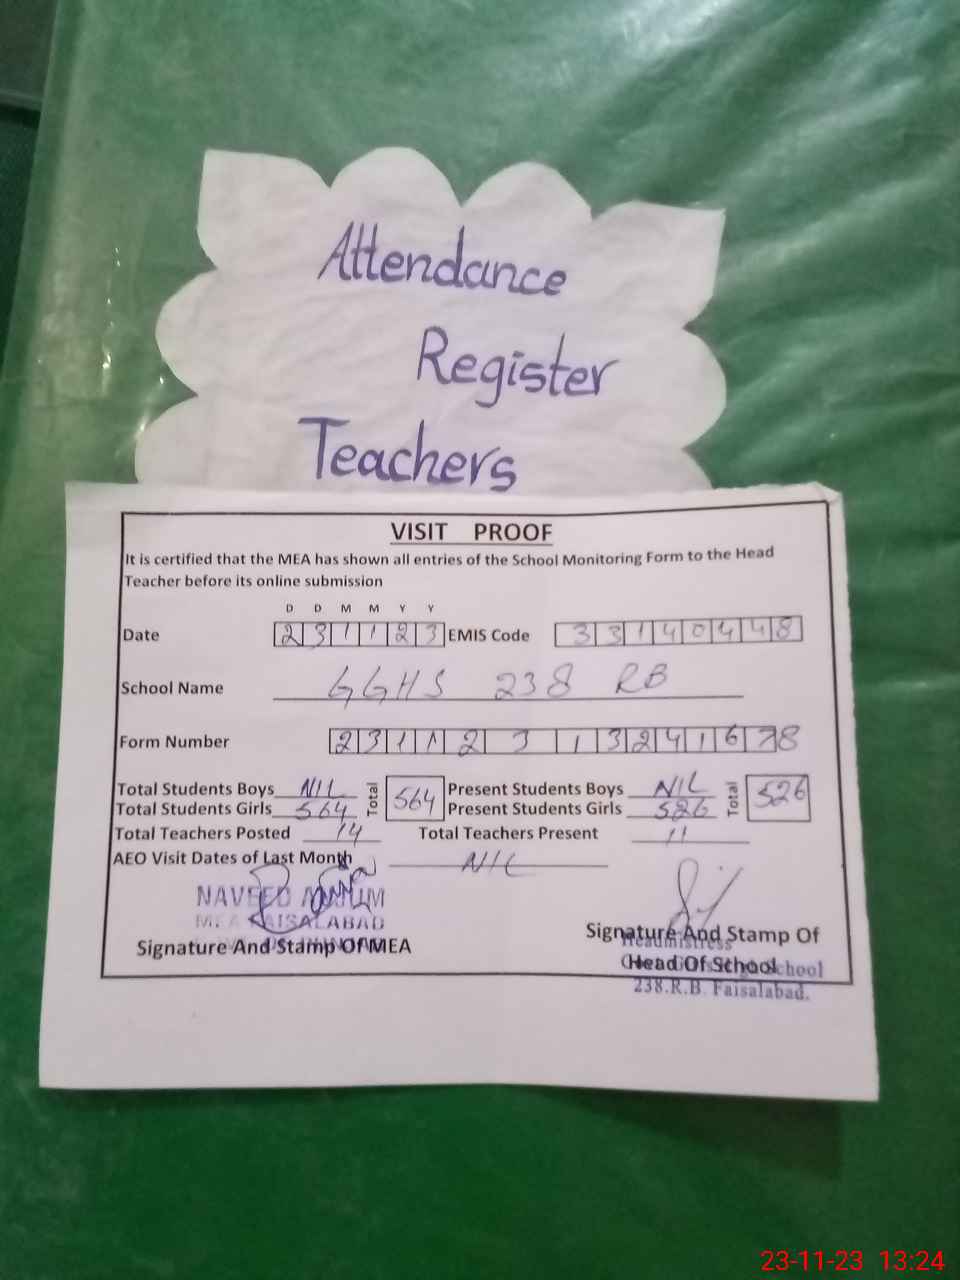 Attendance
Register
Teachers
VISIT PROOF
It is certified that the MEA has shown all entries of the School Monitoring Form to the Head
Teacher before its online submission
D D M M Y Y
Date 231123 EMIS Code 33140448
School Name GGHS 238 RB
Form Number 23112313241678
Total Students Boys NIL Total 564 Present Students Boys NIL Total 526
Total Students Girls 564 Present Students Girls 526
Total Teachers Posted 14 Total Teachers Present 11
AEO Visit Dates of Last Month NIL
NAVEED
MEA FAISALABAD
Signature And Stamp Of MEA
Signature And Stamp Of
Headmistress
Head Of School
School
238.R.B. Faisalabad.
23-11-23 13:24